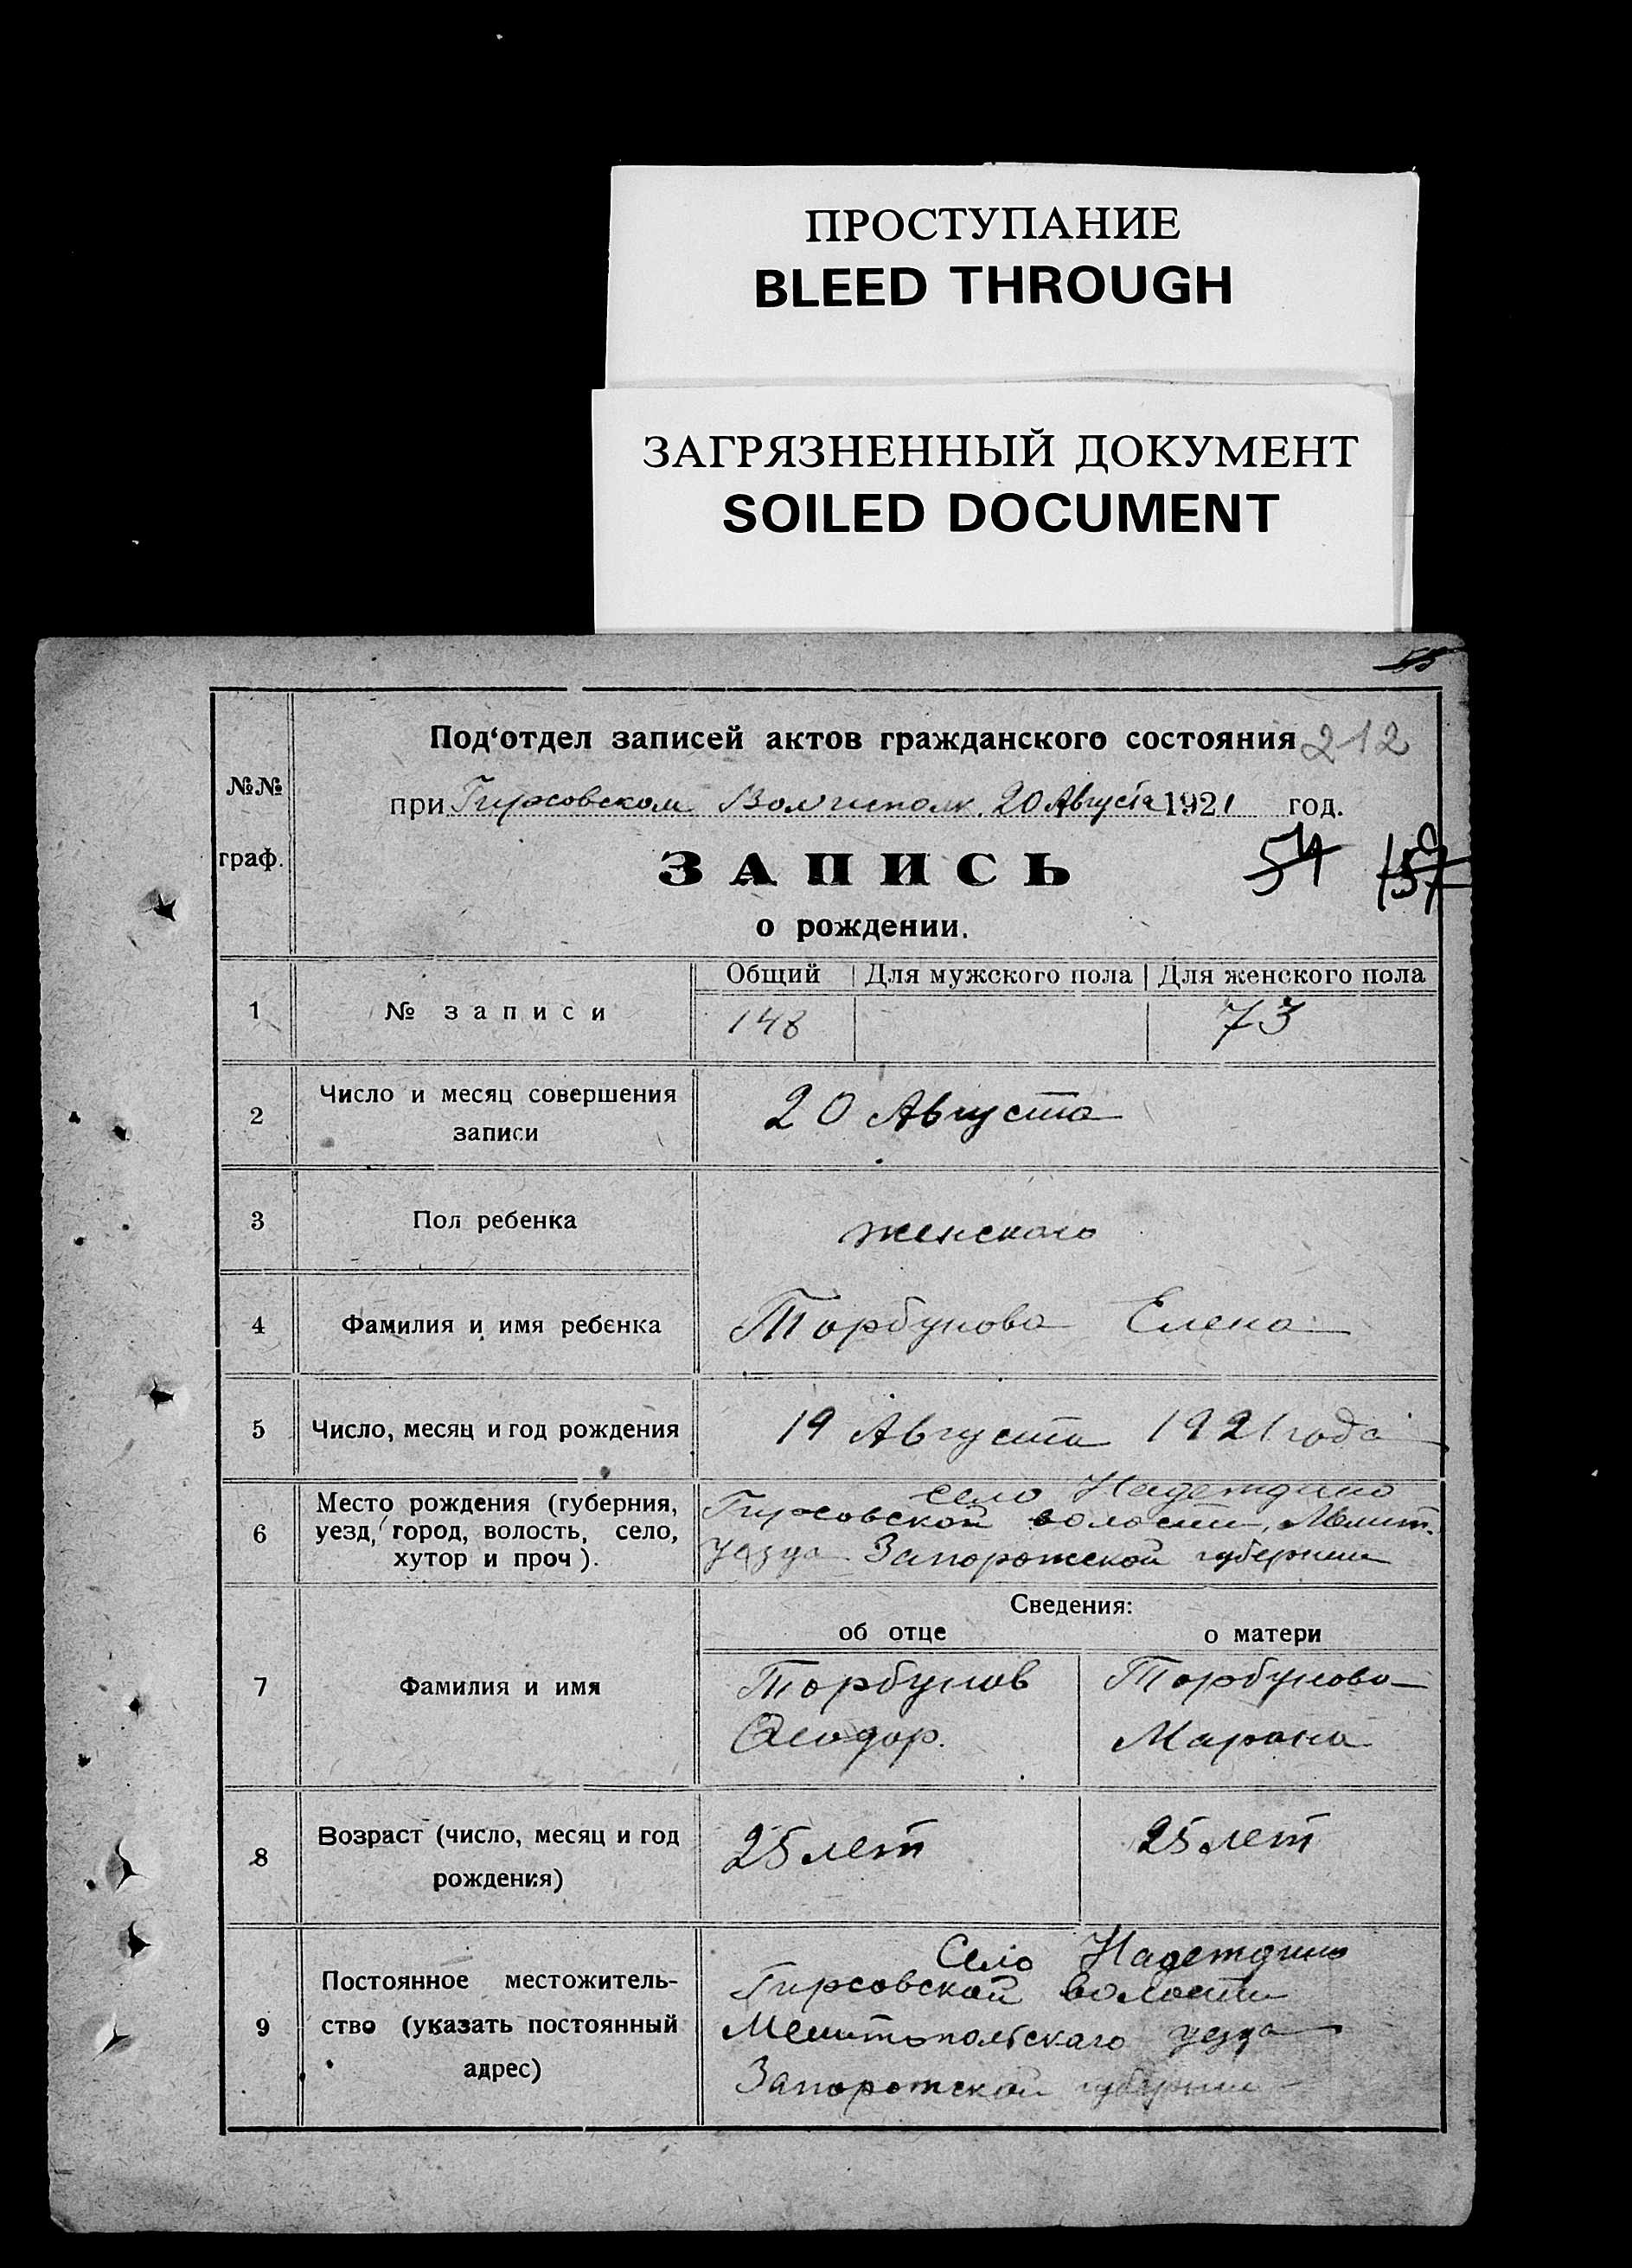 ПРОСТУПАНИЕ
BLEED THROUGH
ЗАГРЯЗНЕННЫЙ ДОКУМЕНТ
SOILED DOCUMENT
55
Под‘отдел записей актов гражданского состояния 212
№№
при Гирсовском Волисполк. 20 Августа 1921 год.
граф.
ЗАПИСЬ
54 157
о рождении.
Общий Для мужского пола Для женского пола
1 № записи 148 73
2 Число и месяц совершения
записи
20 Августа
3 Пол ребенка женского
4 Фамилия и имя ребенка Торбунова Елена
5 Число, месяц и год рождения 19 Августа 1921 года
6 Место рождения (губерния,
уезд, город, волость, село,
хутор и проч).
село Надеждино
Гирсовской волости, Мелит.
уезда Запорожской губернии
Сведения:
об отце о матери
7 Фамилия и имя
Торбунов Торбунова
Феодор. Марона
8 Возраст (число, месяц и год
рождения)
25 лет 25 лет
9 Постоянное местожитель-
ство (указать постоянный
адрес)
Село Надеждино
Гирсовской волости
Мелитопольского уезда
Запорожской губернии